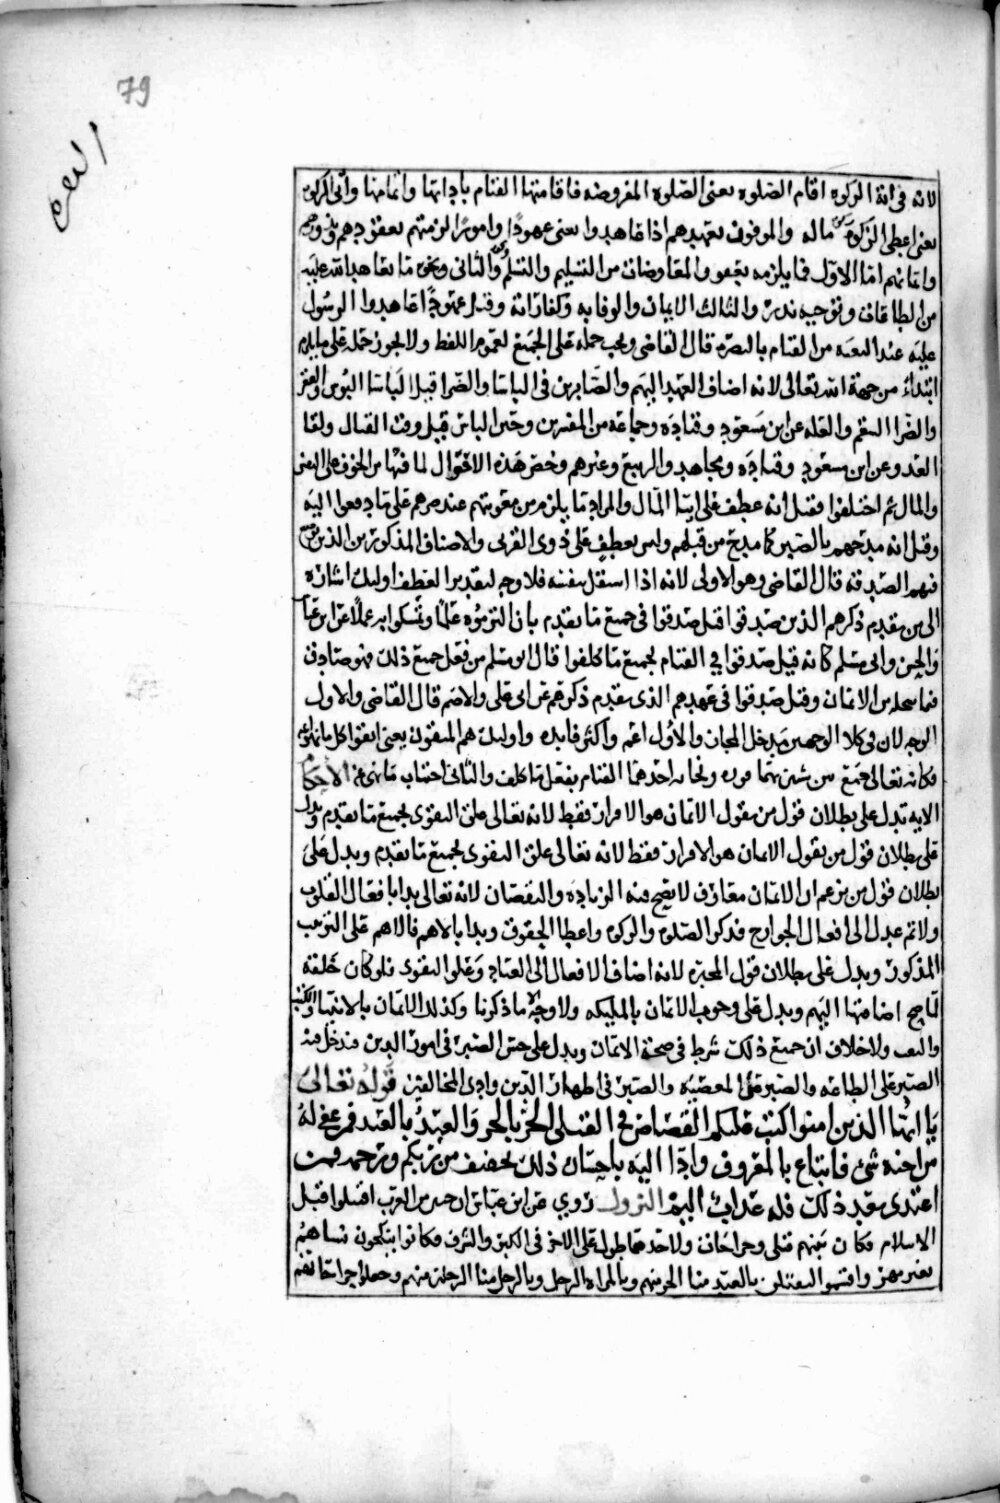 79
البقرة
لانه في اتة الزكوة اقام الصلوة يعنى الصلوة المفروضه فاقامتها القيام بادابها واتمامها واتى الزكوة
يعنى اعطى الزكوة ماله والموفون بعهدهم اذا عاهدوا يعنى عهودا وامورا لزمتهم بعقودهم ونذورهم
وايمانهم اما الاول فما يلزمه بعقود المعاوضات من التسليم والتسلم والثانى ونحو ما يعاهد الله عليه
من الطاعات ونوجبه نذرا والثالث الايمان والوفا به وكفاراته وقيل عهودا عاهدوا الرسول
عليه عند البيعه من القيام بالنصرة قال القاضى ويجب حمله على الجميع لعموم اللفظ ولا يجوز حمله على ما يلزم
ابتداء من جهة الله تعالى لانه اضاف العهد اليهم والصابرين في الباسا والضرا قيل الباسا البوس والفقر
والضرا السقم والعله عن ابن مسعود وقتادة وجماعة من المفسرين وحين الباس قيل وقت القتال ولقا
العدو عن ابن مسعود وقتادة ومجاهد والربيع وغيرهم وخص هذه الاحوال لما فيها من الخوف على النفس
والمال ثم اختلفوا فقيل انه عطف على ايتا المال والمراد ما يلزم من معونتهم عند صبرهم على ما دفعوا اليه
وقيل انه مدحهم بالصبر كما مدح من قبلهم وليس بعطف على ذوى القربى والاصناف المذكورين الذين
فيهم الصدقه قال القاضى وهو الاولى لانه اذا استقل بنفسه فلا وجه لتقدير العطف اوليك اشارة
الى من تقدم ذكرهم الذين صدقوا قيل صدقوا في جميع ما تقدم بان التزموه علما وتمسكوا به عملا عن ابن عباس
والحسن وابى مسلم كانه قيل صدقوا في القيام بجميع ما كلفوا قال ابو مسلم من فعل جميع ذلك فهو صادق
فيما من الايمان وقيل صدقوا في عهدهم الذى تقدم ذكرهم عن ابى على والاصم قال القاضى والاول
الوجه لان في كلا الوجهين يدخل المجاز والاول اعم واكثر فايده واوليك هم المتقون يعنى اتقوا كل ما نهوا عنه
فكانه تعالى جمع بين شيين احدهما القيام بفعل ما كلف والثانى اجتناب ما نهى عنه الاحكام
الايه تدل على بطلان قول من يقول الايمان هو الاقرار فقط لانه تعالى علق التقوى بجميع ما تقدم ويدل
على بطلان قول من يقول الايمان هو الاقرار فقط لانه تعالى علق التقوى بجميع ما تقدم ويدل على
بطلان قول من يزعم ان الايمان معارف لا يصح فيه الزيادة والنقصان لانه تعالى بدا بافعال القلوب
ولا ثم عدل الى افعال الجوارح فذكر الصلوة والزكوة واعطا الحقوق وبدا بالاهم فالاهم على الترتيب
المذكور ويدل على بطلان قول المجبرة لانه اضاف الافعال الى العباد وعلق التقوى فلو كان خلقه
لما صح اضافتها اليهم ويدل على وجوب الايمان بالمليكه ولا وجه الا ما ذكرنا وكذلك الايمان بالانبيا والكتب
والبعث ولا خلاف ان جميع ذلك شرط في صحة الايمان ويدل على حسن الصبر في امور الدين فيدخل فيه
الصبر على الطاعه والصبر على المعصيه والصبر في اظهار الدين واذى المخالفين قوله تعالى
يا ايها الذين امنوا كتب عليكم القصاص في القتلى الحر بالحر والعبد بالعبد فمن عفى له
من اخيه شى فاتباع بالمعروف واداا اليه باحسان ذلك تخفيف من ربكم ورحمه فمن
اعتدى بعد ذلك فله عذاب اليم النزول روي عن ابن عباس ان حيين من العرب اقتتلوا قبل
الاسلام فكان بينهم قتلى وجراحات ولاحدهما طول على الاخر في الكثرة والشرف فكانوا ينكحون نساهم
بغير مهر واقسموا ليقتلن بالعبد منا الحر منهم وبالمراه الرجل وبالرجل منا الرجلين منهم وجعلوا جراحاتهم